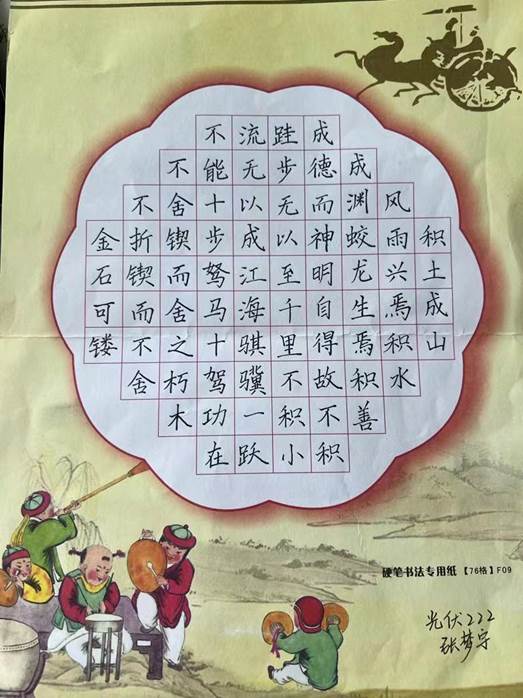 积土成山
风雨兴焉积水
成渊蛟龙生焉积善
成德而神明自得故不积
跬步无以至千里不积小
流无以成江海骐骥一跃
不能十步驽马十驾功在
不舍锲而舍之朽木
不折锲而不舍
金石可镂
硬笔书法专用纸【76格】F09
光伏222
张梦宇